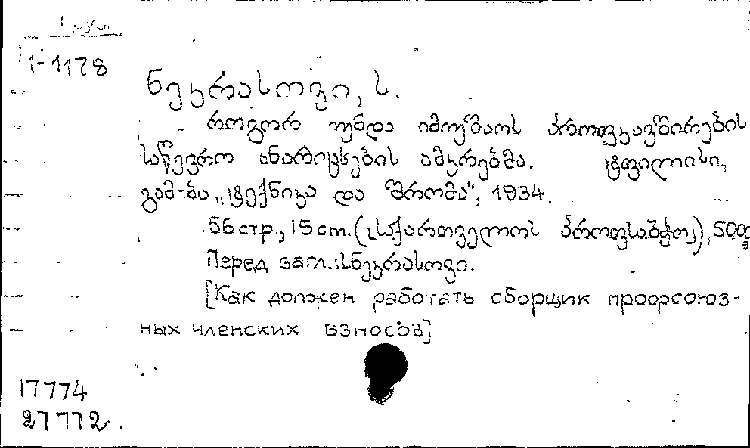 1-1178
ნეკრასოვი, ს.
როგორ უნდა იმუშაოს პროფკავშირების
საწევრო ანარიცხების ამკრებმა. ტფილისი,
გამ-ბა „ტექნიკა და შრომა", 1934.
56 стр., 15 cm. (საქართველოს პროფსაბჭო), 500
Перед загл.: სნეკრასოვი.
[Как должен работать сборщик профсоюз-
ных членских взносов]
17774
27772.